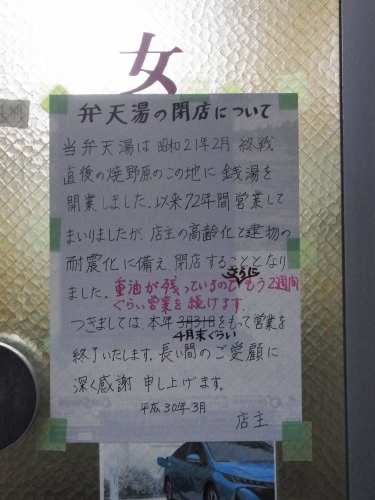 女
弁天湯の閉店について
当弁天湯は昭和21年2月 終戦
直後の焼野原のこの地に銭湯を
開業しました。以来72年間営業して
まいりましたが、店主の高齢化と建物の
耐震化に備え、閉店することとなり
ました。重油が残っているのでさらにもう2週間
ぐらい営業を続けます。
つきましては、本年3月31日をもって営業を
4月末ぐらい
終了いたします。長い間のご愛顧に
深く感謝 申し上げます。
平成30年3月
店主